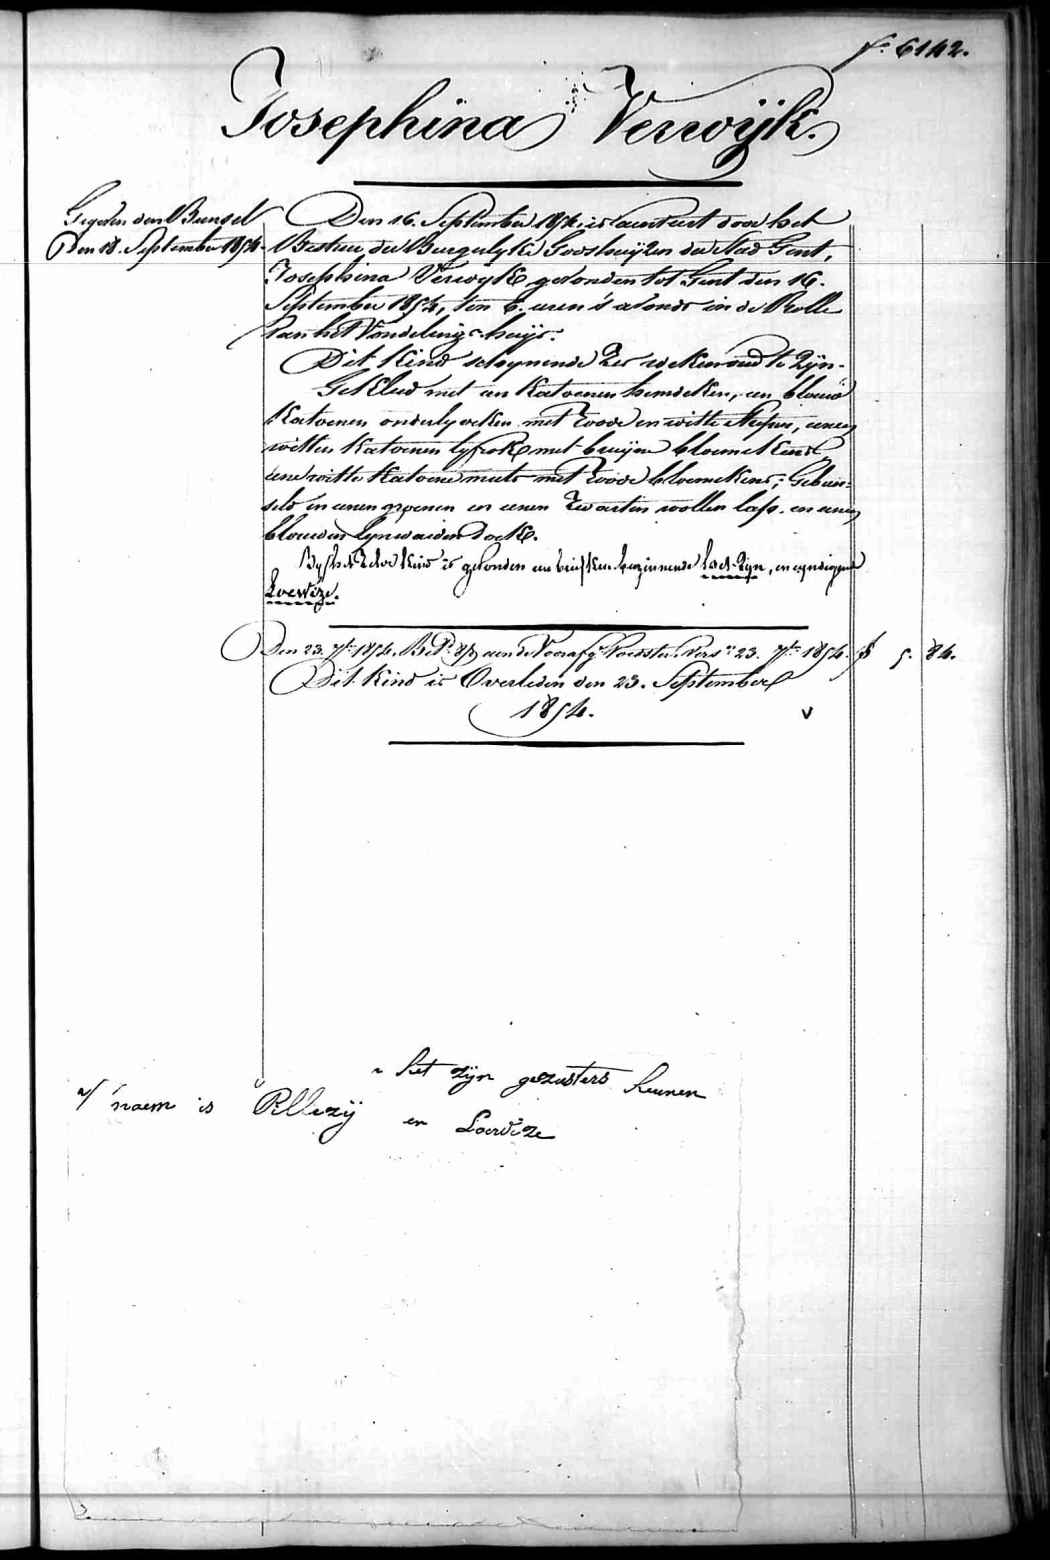 f.° 6142.
Josephina Verwÿk.
Gegeven den Bunsel
Den 18. September 1854.
Den 16. September 1854. is aenveert door het
Bestuer der Burgerlyke Godshuijzen der Stad Gent,
Josephina Verwyk gevonden tot Gent den 16.
September 1854, ten 6. uren 's avonds in de Rolle
van het Vondelings-huijs.
Dit Kind schynende zes weken oud te zyn.
Gekleed met een Katoenen hemdeken, een blauw
Katoenen onderlyveken met roode en witte strepen, eenen
witten Katoenen lyfrok met bruijne bloemekens,
eene witte Katoene muts met roode bloemekens; Gebun-
seld in eenen groenen en eenen zwarten wollen lap. en eenen
blauwen lynwaeden doek.
By het zelve Kind is gevonden een briefken beginnende het zyn, en eyndigende
Loewize.
Den 23. 7br 1854. Bet. aen de Voorafg. Voedster. Vers. 23. 7br 1854. f 5. 84.
Dit Kind is Overleden den 23. September
1854. v
het zÿn gezusters heunen
naem is Pellezÿ en Loewize